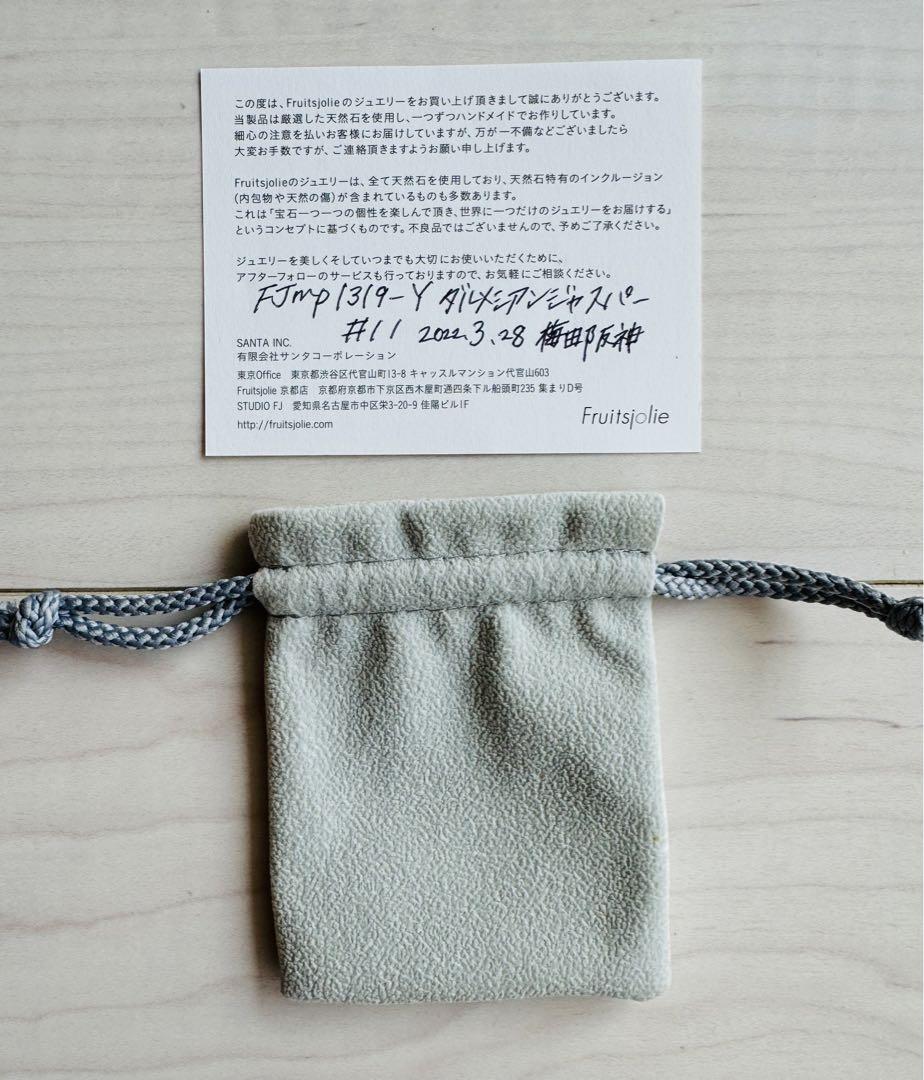 この度は、Fruitsjolieのジュエリーをお買い上げ頂きまして誠にありがとうございます。
当製品は厳選した天然石を使用し、一つずつハンドメイドでお作りしています。
細心の注意を払いお客様にお届けしていますが、万が一不備などございましたら
大変お手数ですが、ご連絡頂きますようお願い申し上げます。
Fruitsjolieのジュエリーは、全て天然石を使用しており、天然石特有のインクルージョン
(内包物や天然の傷)が含まれているものも多数あります。
これは「宝石一つ一つの個性を楽しんで頂き、世界に一つだけのジュエリーをお届けする」
というコンセプトに基づくものです。不良品ではございませんので、予めご了承ください。
ジュエリーを美しくそしていつまでも大切にお使いいただくために、
アフターフォローのサービスも行っておりますので、お気軽にご相談ください。
FJmp1319-Y ダルメシアンジャスパー
#11 2022.3.28 梅田阪神
SANTA INC.
有限会社サンタコーポレーション
東京Office 東京都渋谷区代官山町13-8 キャッスルマンション代官山603
Fruitsjolie 京都店 京都府京都市下京区西木屋町通四条下ル船頭町235 集まりD号
STUDIO FJ 愛知県名古屋市中区栄3-20-9 佳陽ビル1F
http://fruitsjolie.com
Fruitsjolie